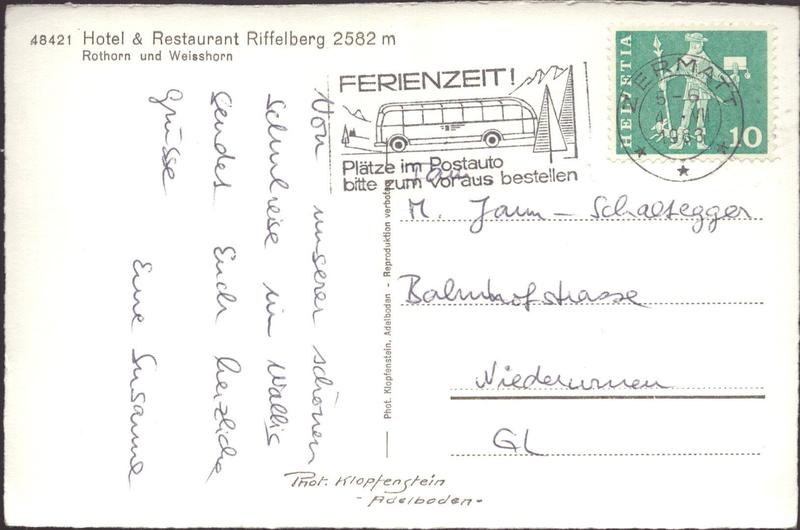 48421 Hotel & Restaurant Riffelberg 2582 m
Rothorn und Weisshorn
Von unserer schönen
Schulreise im Wallis
sendet Euch herzliche
Grüsse
Eure Susanne
FERIENZEIT!
Plätze im Postauto
bitte zum voraus bestellen
ZERMATT
1968
HELVETIA
10
Fam.
M. Jann - Schaltegger
Bahnhofstrasse
Niederurnen
GL
Phot. Klopfenstein, Adelboden - Reproduktion verboten
Phot. Klopfenstein
- Adelboden -